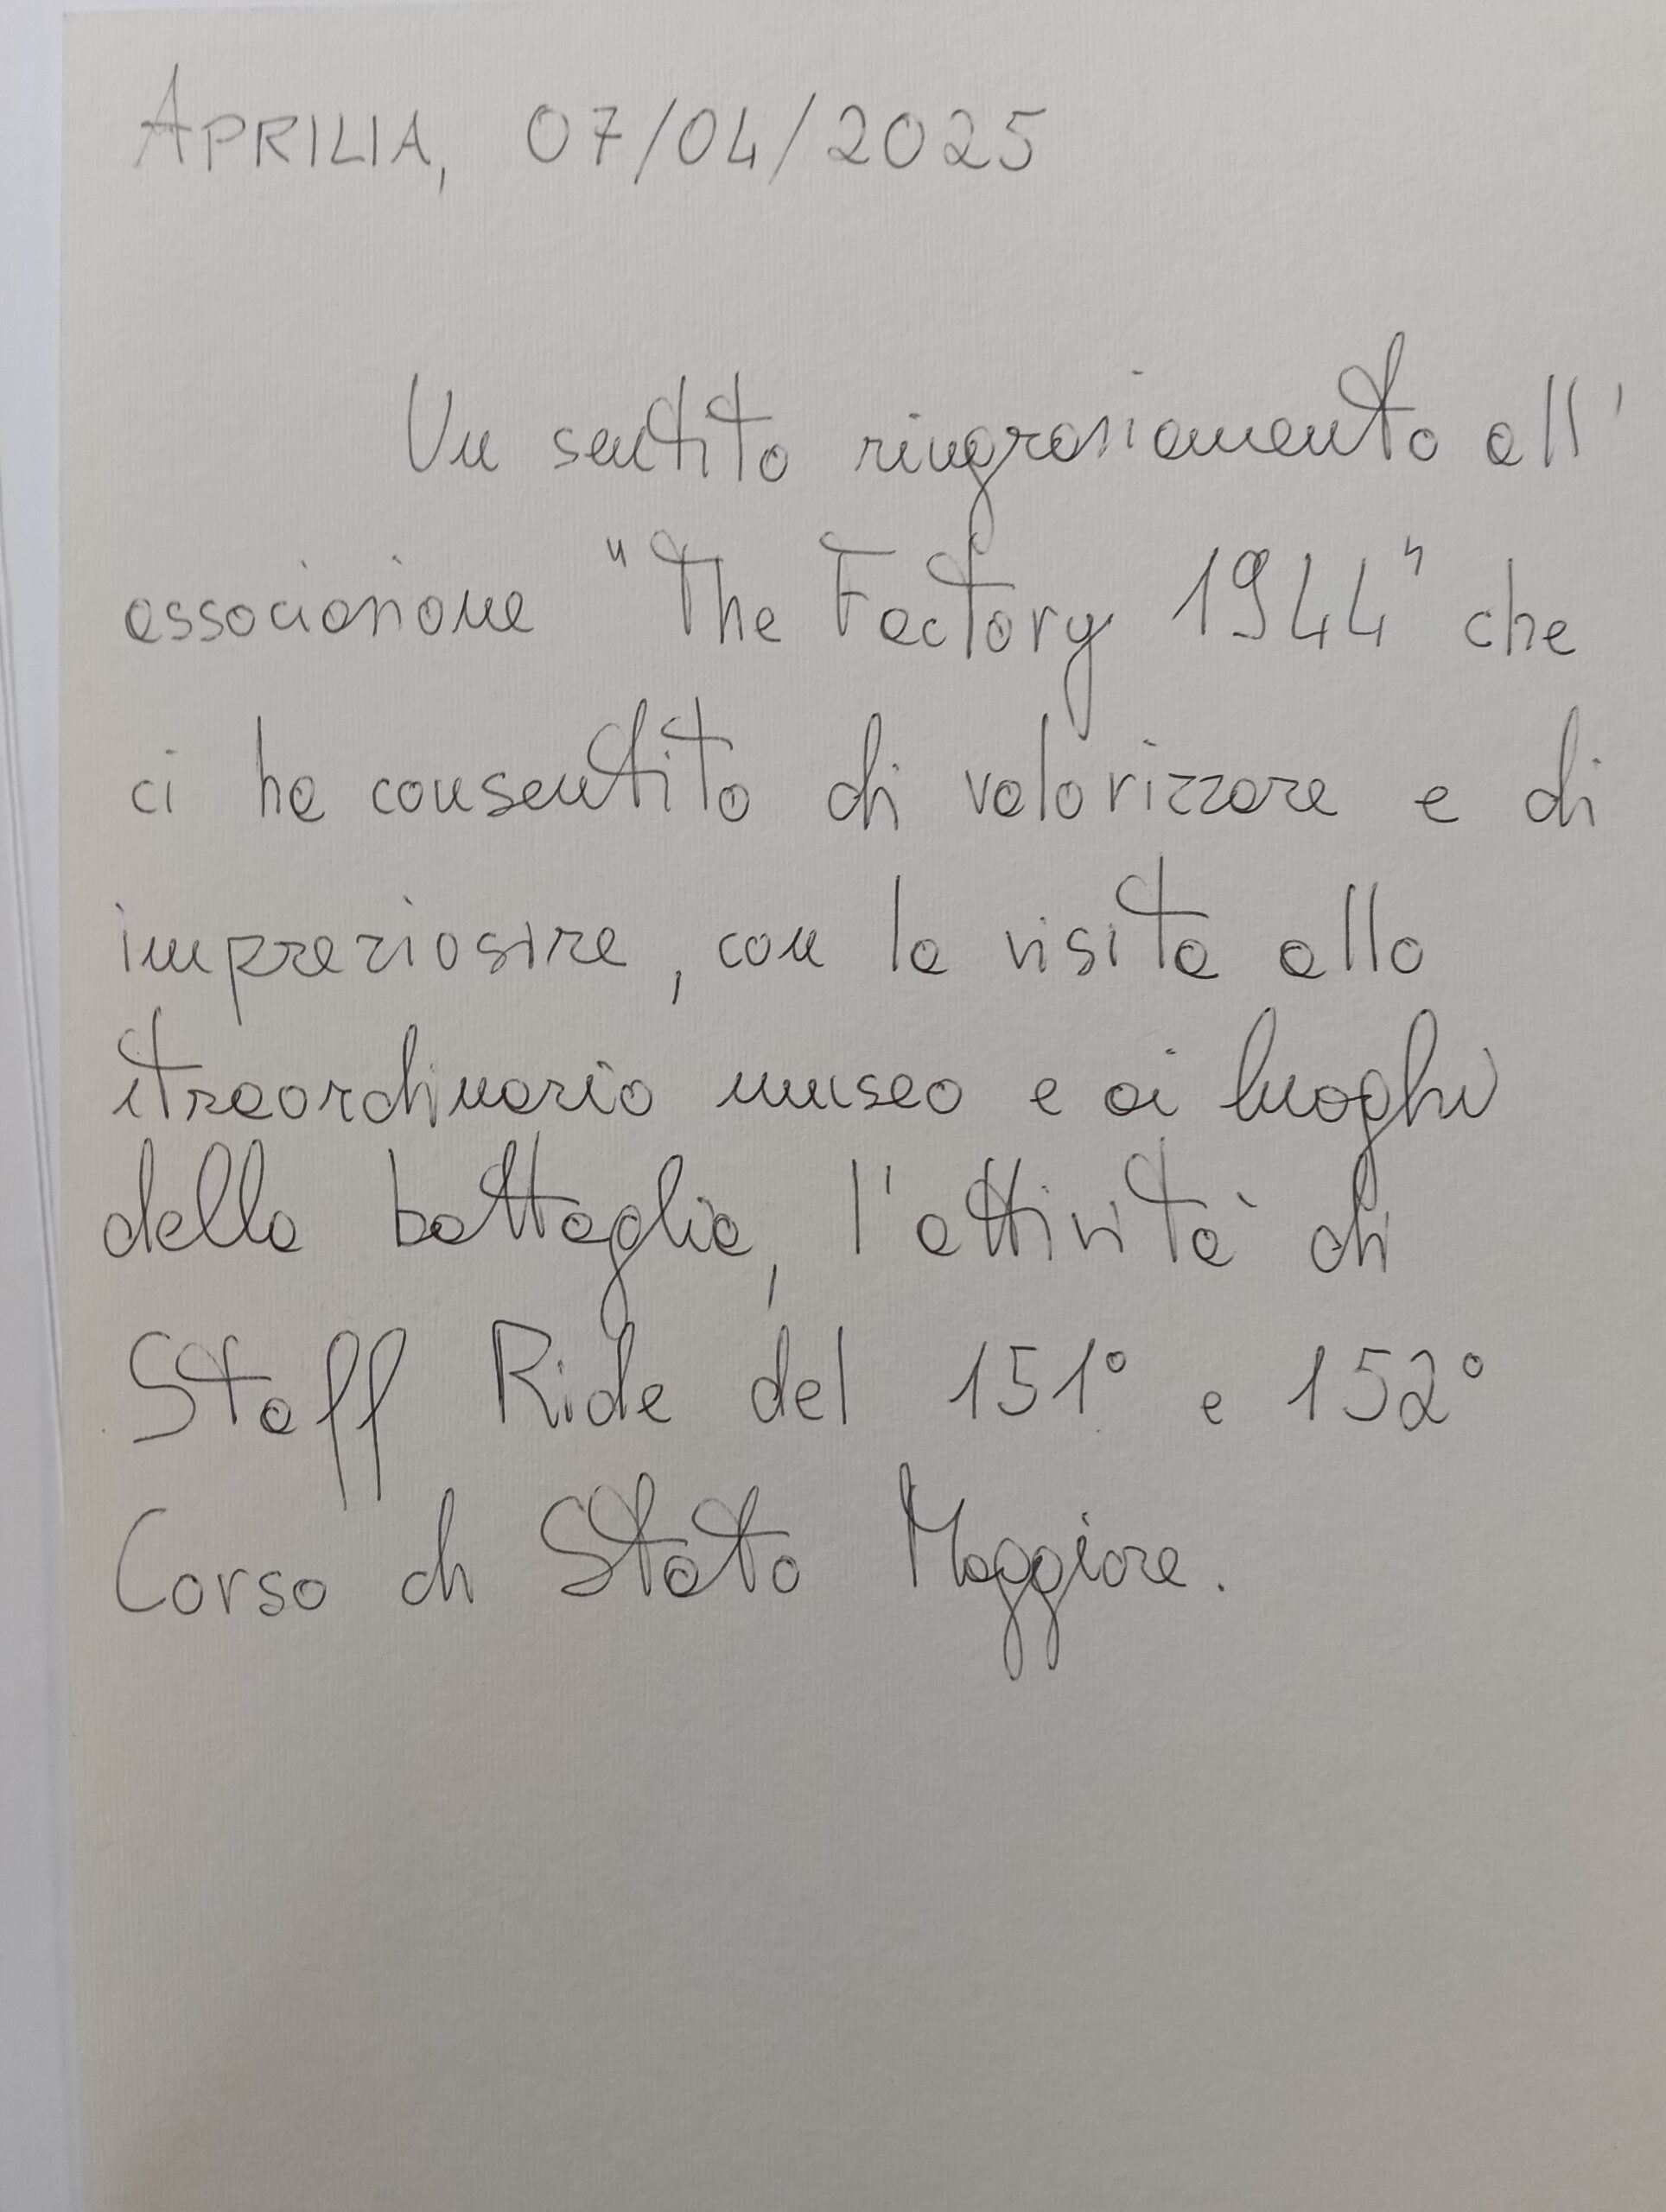 APRILIA, 07/04/2025
Un sentito ringraziamento all'
associazione "The Factory 1944" che
ci ha consentito di valorizzare e di
impreziosire, con la visita allo
straordinario museo e ai luoghi
della battaglia, l'attività di
Staff Ride del 151° e 152°
Corso di Stato Maggiore.